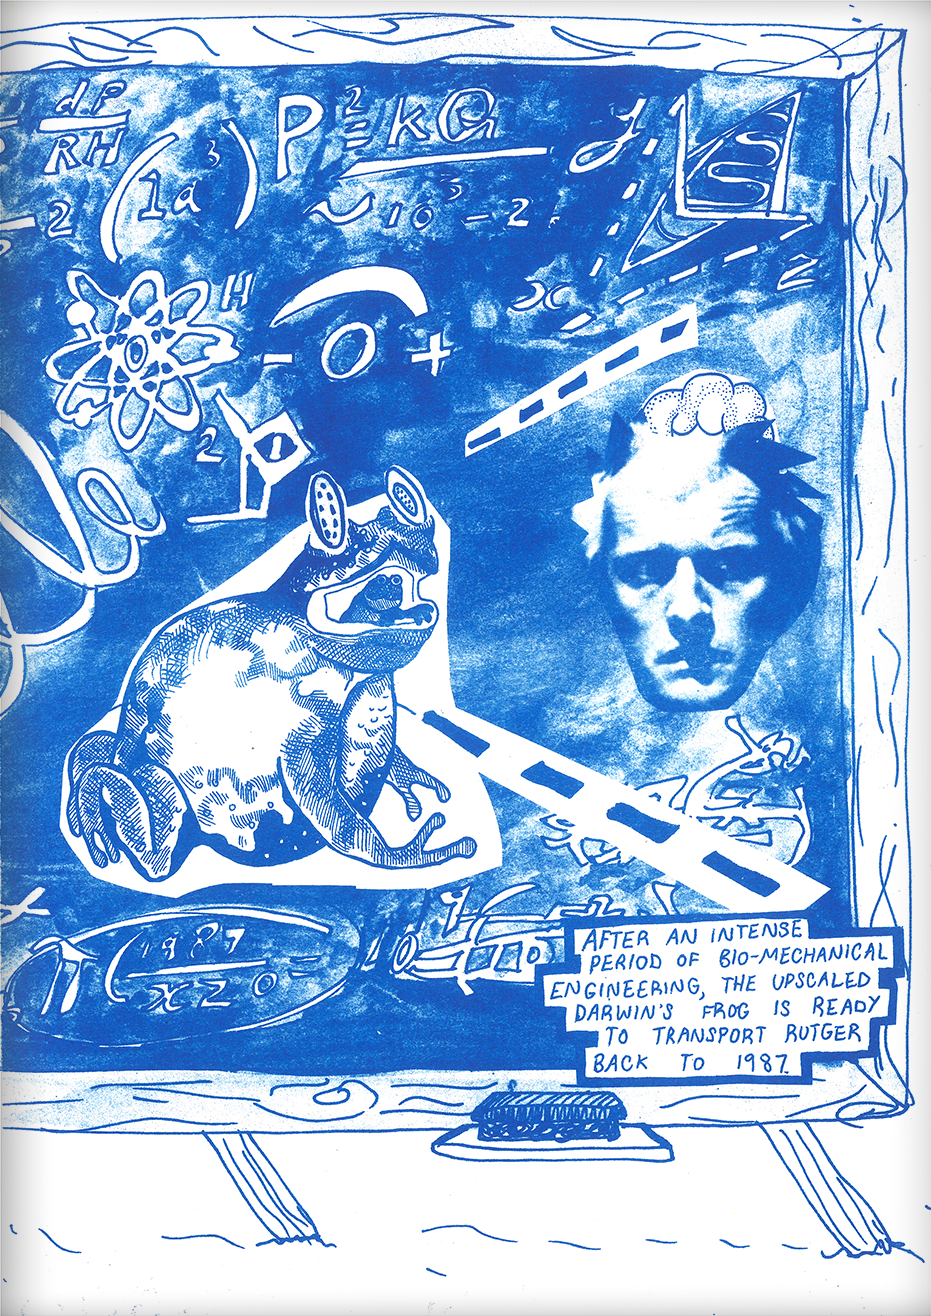 dP
RH
P ≡ kQ
2
(1a³)
2
~ 10³ - 2
H
x
2
- O +
2
1
(1987
x z o
AFTER AN INTENSE
PERIOD OF BIO-MECHANICAL
ENGINEERING, THE UPSCALED
DARWIN'S FROG IS READY
TO TRANSPORT RUTGER
BACK TO 1987.